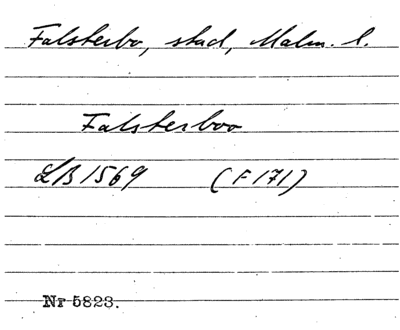 Falsterbo, stad, Malm. l.
Falsterboo
LB 1569 (F 171)
Nr 5823.